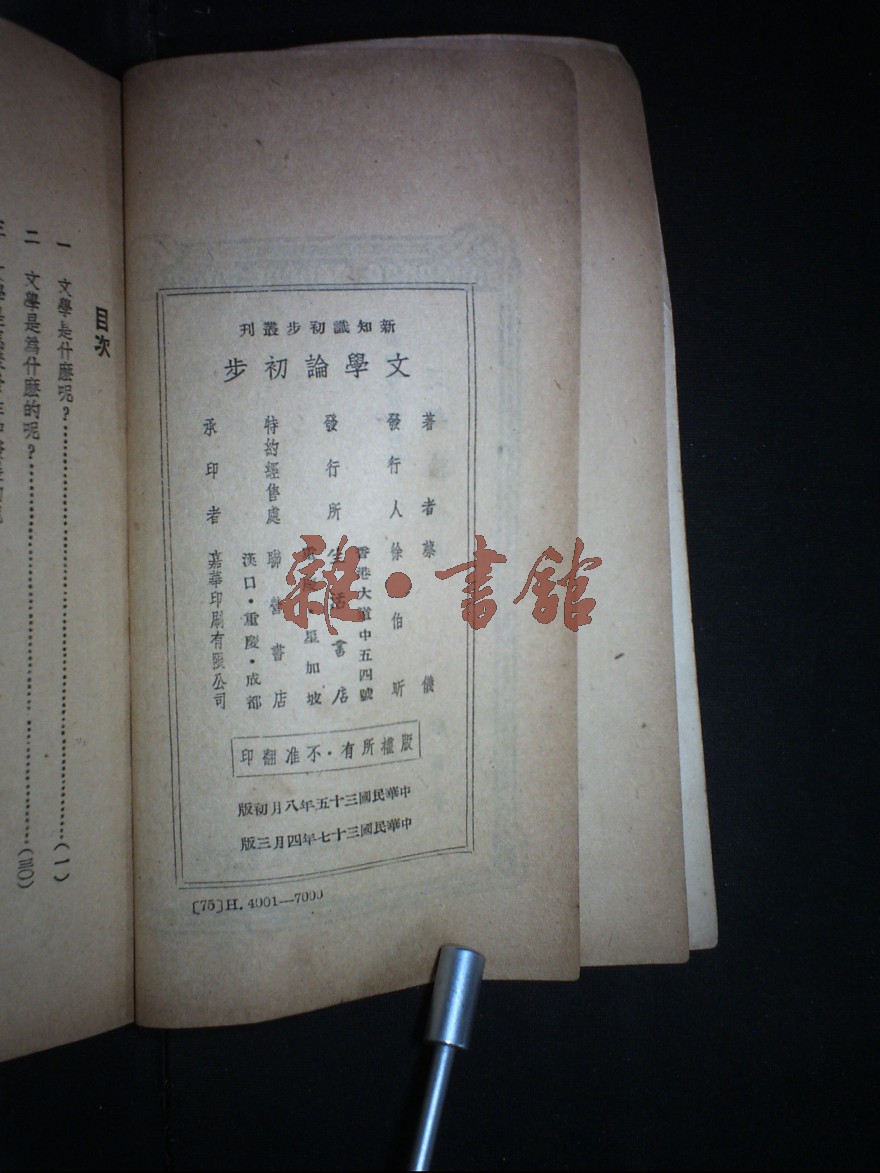 新知識初步叢刊
文學論初步
著者 蔡儀
發行人 徐伯昕
香港大道中五四號
發行所 生活書店
星加坡
特約經售處 聯營書店
漢口・重慶・成都
承印者 嘉華印刷有限公司
版權所有・不准翻印
中華民國三十五年八月初版
中華民國三十七年四月三版
[75]H. 4001—7000
目次
一 文學是什麽呢？…(一)
二 文學是爲什麽的呢？…(三〇)
三
雜・書館